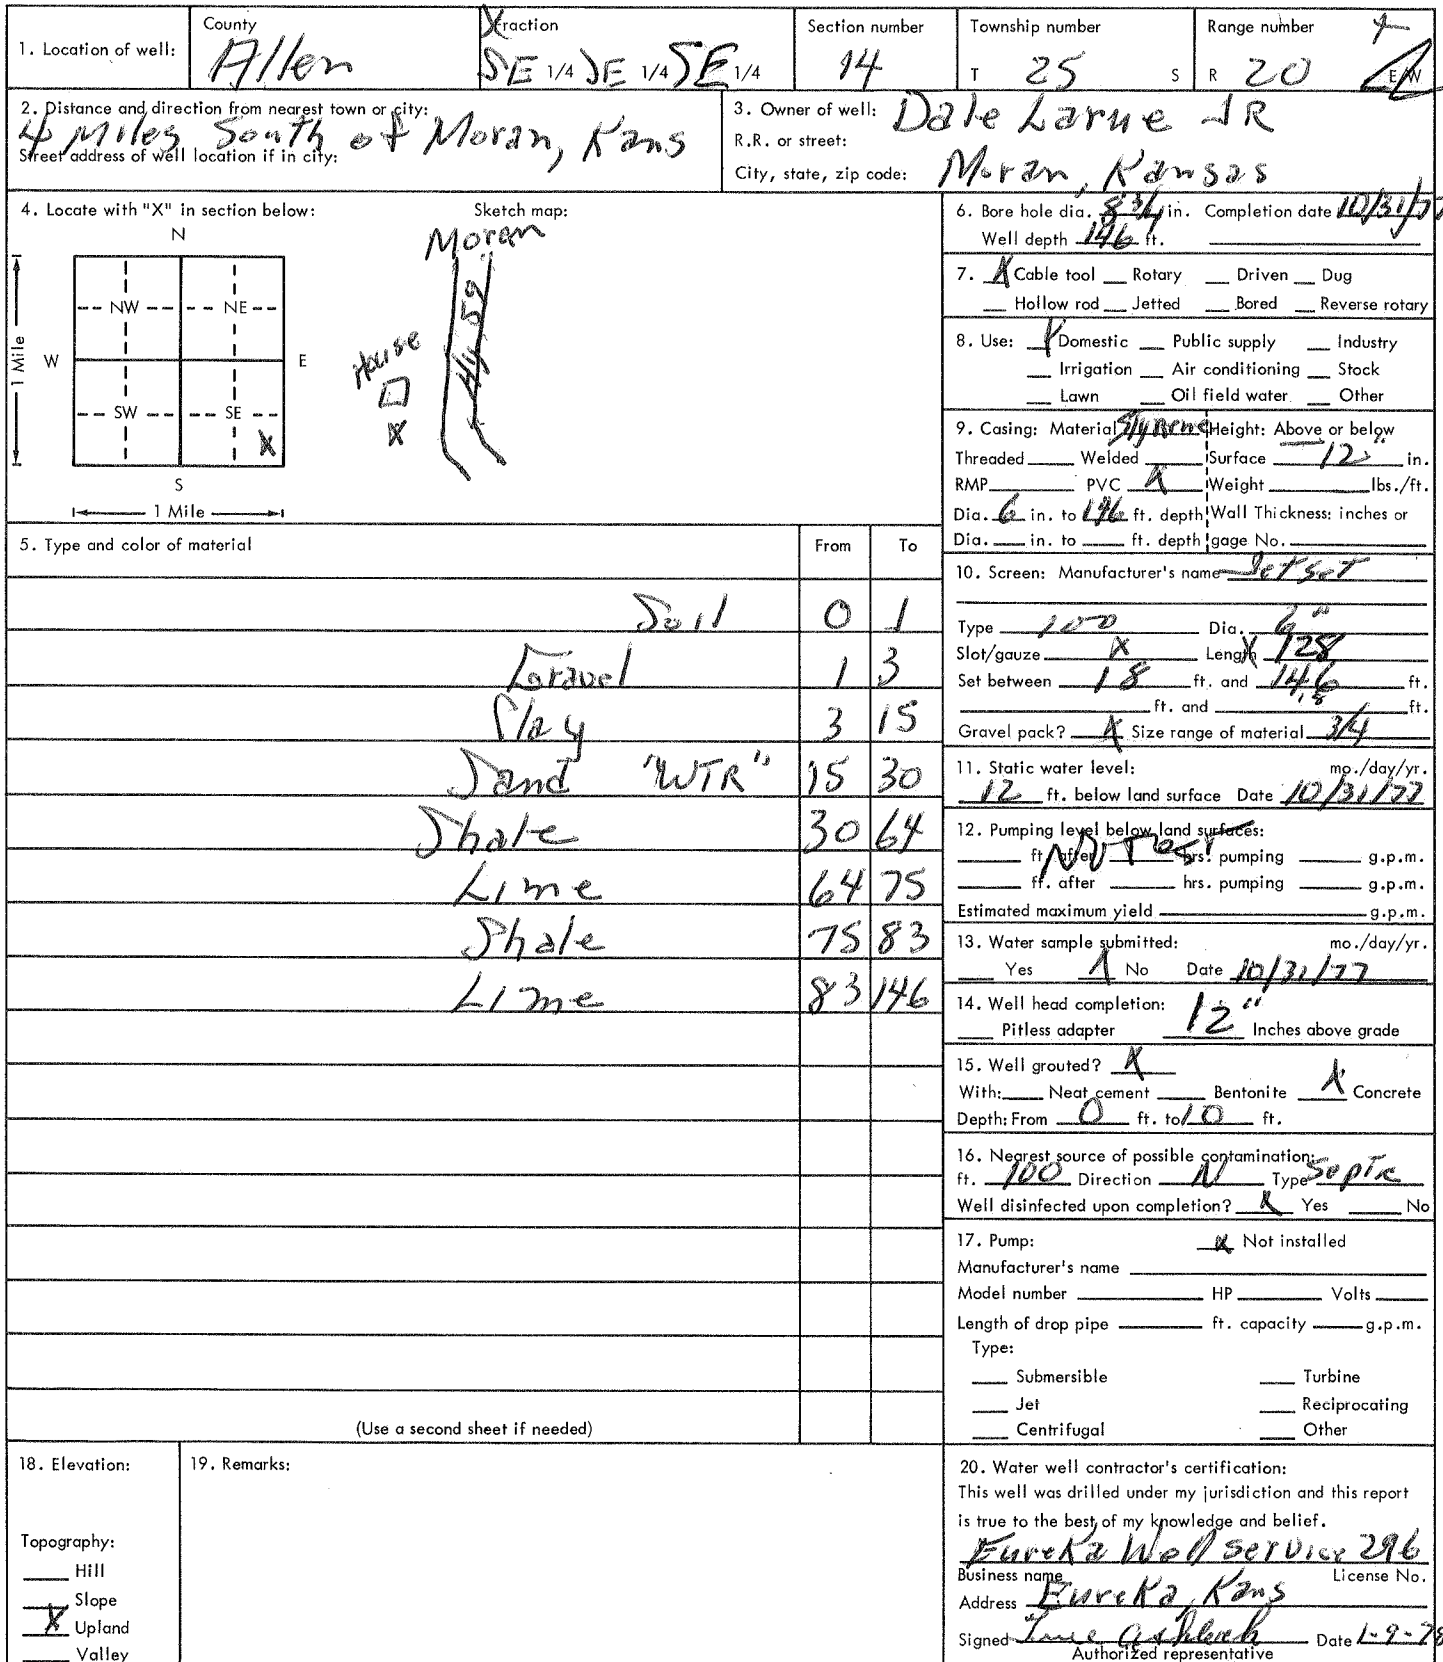 1. Location of well:
County
Allen
Fraction
SE 1/4 SE 1/4 SE 1/4
Section number
14
Township number
T 25 S
Range number
R 20 E/W
2. Distance and direction from nearest town or city:
4 Miles South of Moran, Kans
Street address of well location if in city:
3. Owner of well: Dale Larue JR
R.R. or street:
City, state, zip code: Moran, Kansas
4. Locate with "X" in section below:
N
NW NE
W E
SW SE
X
S
1 Mile
1 Mile
Sketch map:
Moran
Hy 59
House
X
5. Type and color of material From To
Soil 0 1
Gravel 1 3
Clay 3 15
Sand "WTR" 15 30
Shale 30 64
Lime 64 75
Shale 75 83
Lime 83 146
(Use a second sheet if needed)
6. Bore hole dia. 8 3/4 in. Completion date 10/31/77
Well depth 146 ft.
7. X Cable tool Rotary Driven Dug
Hollow rod Jetted Bored Reverse rotary
8. Use: X Domestic Public supply Industry
Irrigation Air conditioning Stock
Lawn Oil field water Other
9. Casing: Material Styrene Height: Above or below
Threaded Welded Surface 12" in.
RMP PVC X Weight lbs./ft.
Dia. 6 in. to 146 ft. depth Wall Thickness: inches or
Dia. in. to ft. depth gage No.
10. Screen: Manufacturer's name Jet Set
Type 100 Dia. 6"
Slot/gauze X Length X 128
Set between 18 ft. and 146 ft.
ft. and ft.
Gravel pack? X Size range of material 3/4
11. Static water level: mo./day/yr.
12 ft. below land surface Date 10/31/77
12. Pumping level below land surfaces:
No Test
ft. after hrs. pumping g.p.m.
ft. after hrs. pumping g.p.m.
Estimated maximum yield g.p.m.
13. Water sample submitted: mo./day/yr.
Yes X No Date 10/31/77
14. Well head completion:
Pitless adapter 12" Inches above grade
15. Well grouted? X
With: Neat cement Bentonite X Concrete
Depth: From 0 ft. to 10 ft.
16. Nearest source of possible contamination:
ft. 100 Direction N Type Septc
Well disinfected upon completion? X Yes No
17. Pump: X Not installed
Manufacturer's name
Model number HP Volts
Length of drop pipe ft. capacity g.p.m.
Type:
Submersible Turbine
Jet Reciprocating
Centrifugal Other
18. Elevation:
Topography:
Hill
Slope
X Upland
Valley
19. Remarks:
20. Water well contractor's certification:
This well was drilled under my jurisdiction and this report
is true to the best of my knowledge and belief.
Eureka Well Service 296
Business name License No.
Address Eureka, Kans
Signed Date 1-9-78
Authorized representative